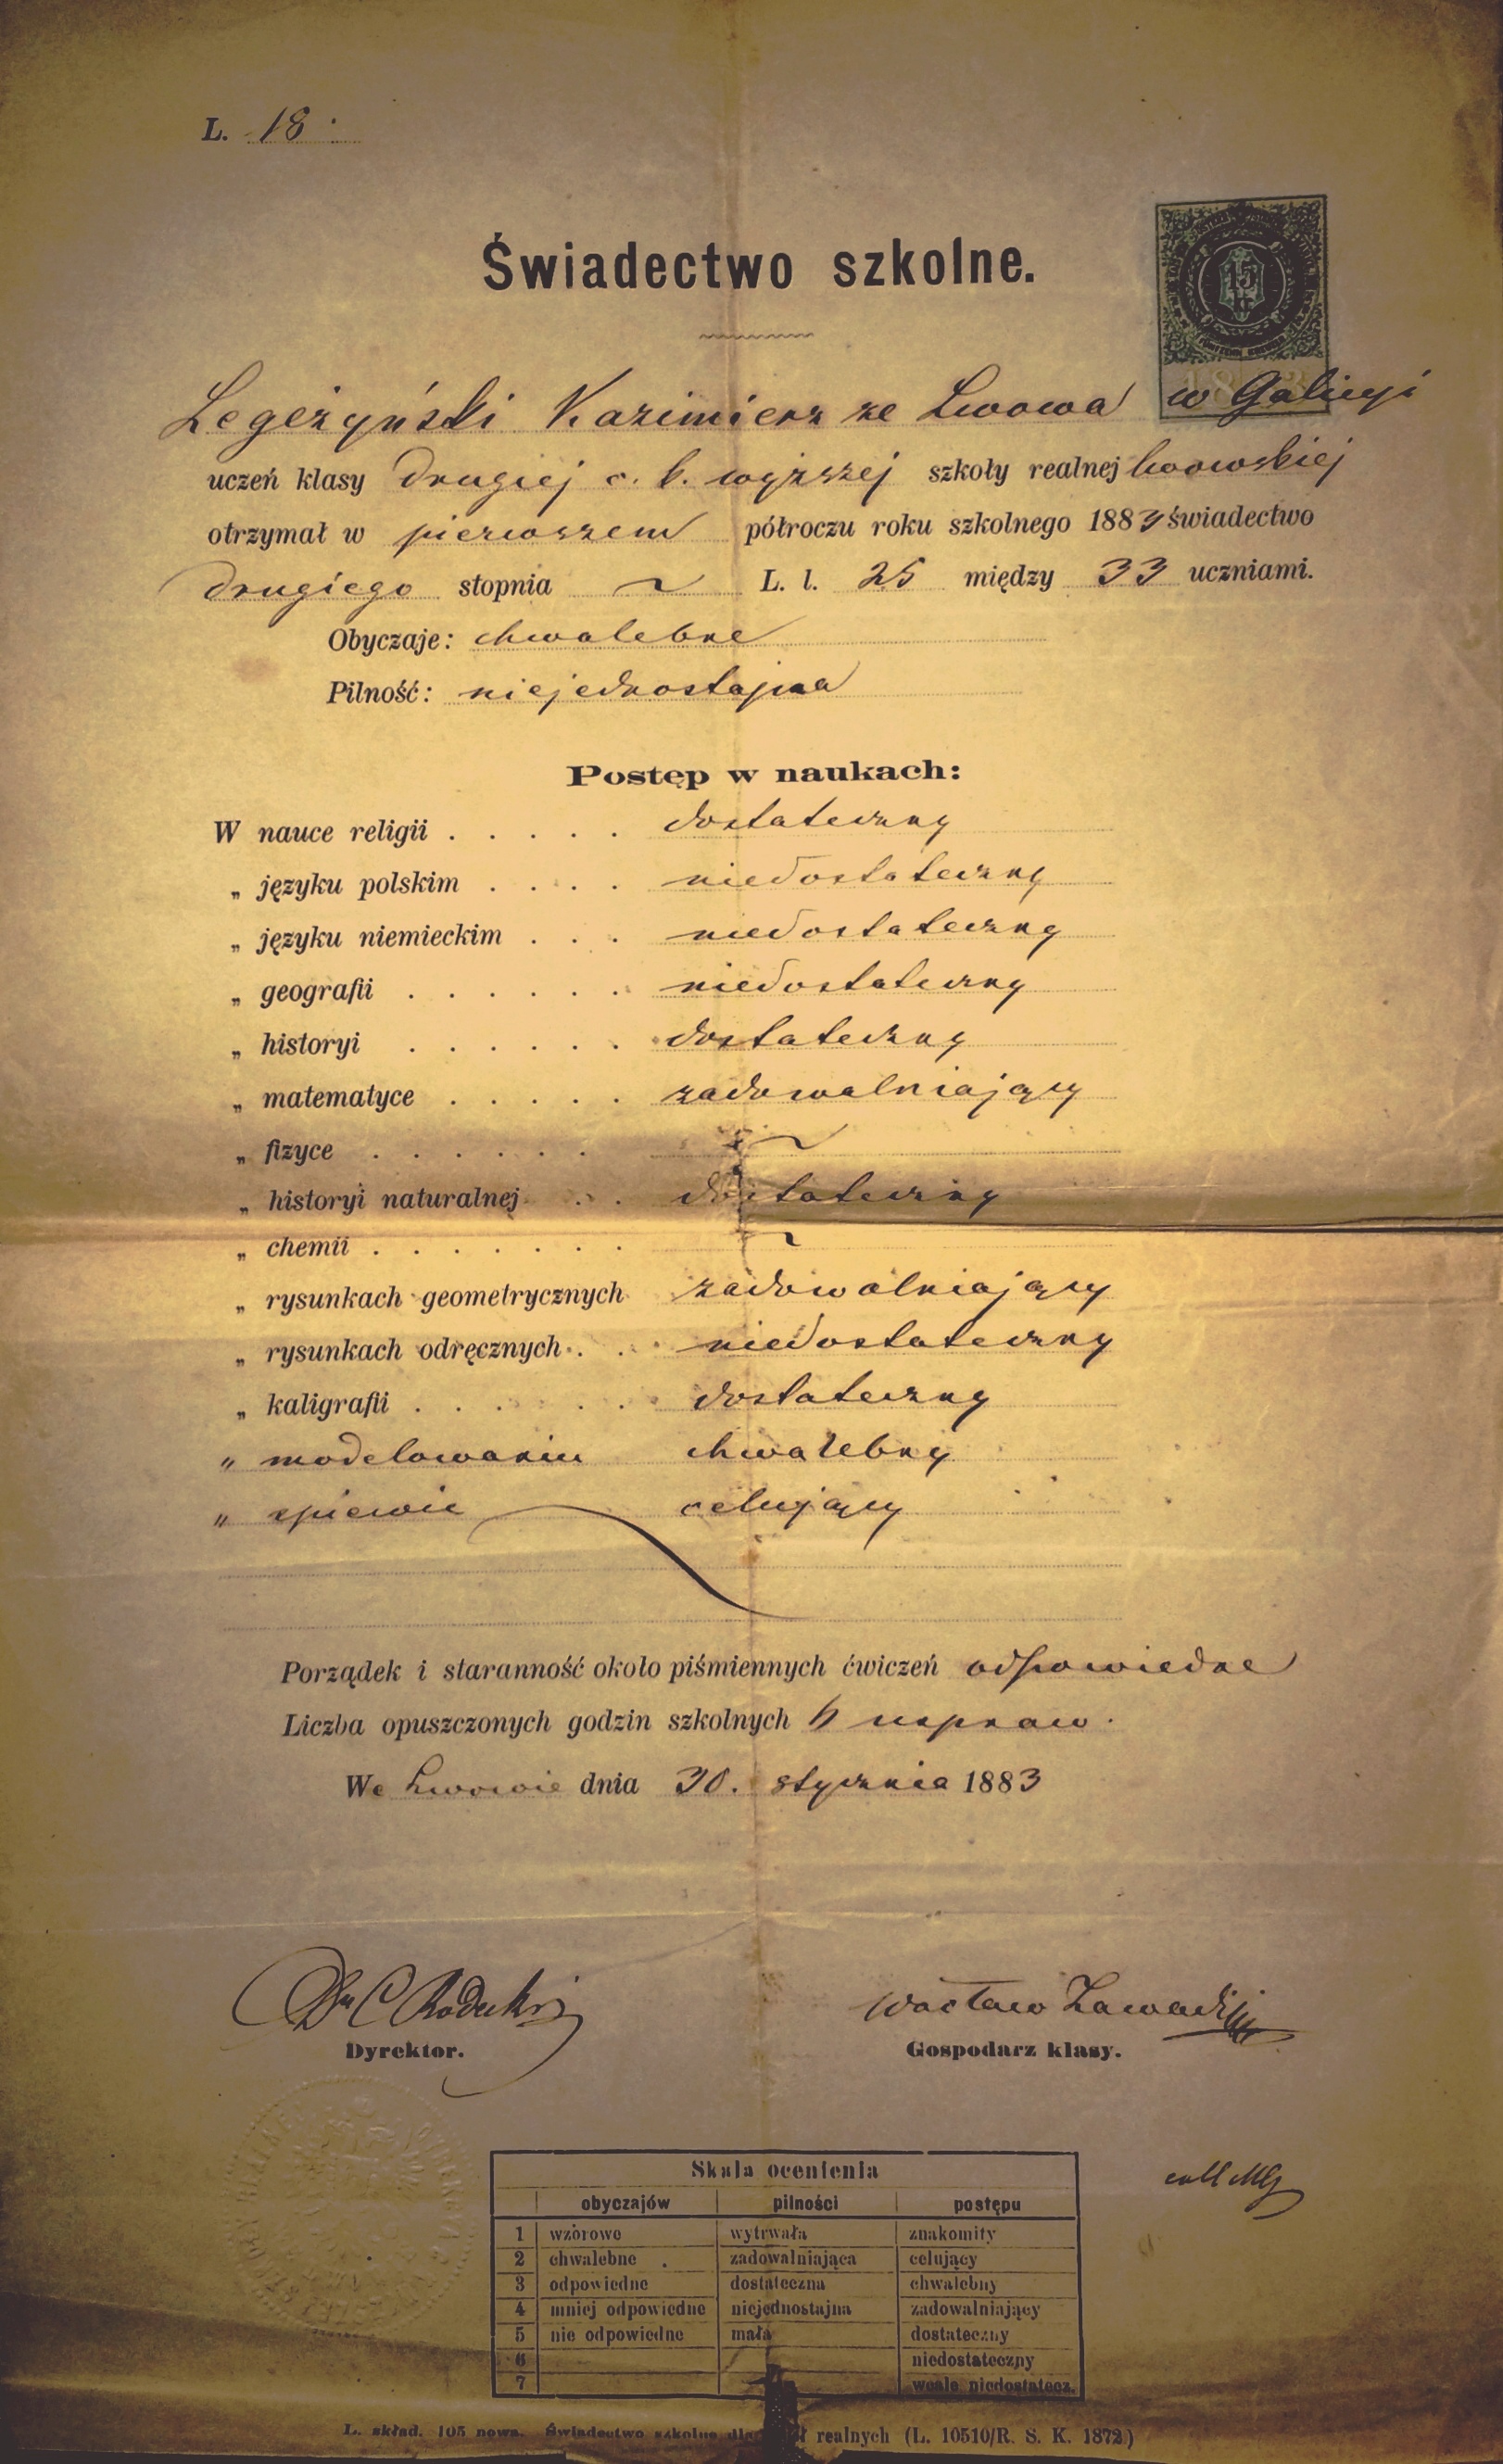 L. 18.
Świadectwo szkolne.
15
kr
Legeżyński Kazimierz ze Lwowa w Galicyi
uczeń klasy drugiej c. k. wyższej szkoły realnej lwowskiej
otrzymał w pierwszem półroczu roku szkolnego 1883 świadectwo
drugiego stopnia ~ L. l. 25 między 33 uczniami.
Obyczaje: chwalebne
Pilność: niejednostajna
Postęp w naukach:
W nauce religii . . . . . dostateczny
„ języku polskim . . . . niedostateczny
„ języku niemieckim . . . niedostateczny
„ geografii . . . . . . niedostateczny
„ historyi . . . . . . dostateczny
„ matematyce . . . . . zadowalniający
„ fizyce . . . . . . ~
„ historyi naturalnej . . dostateczny
„ chemii . . . . . . . ~
„ rysunkach geometrycznych zadowalniający
„ rysunkach odręcznych . . niedostateczny
„ kaligrafii . . . . . . dostateczny
„ modelowaniu chwalebny
„ spiewie celujący
Porządek i staranność około piśmiennych ćwiczeń odpowiedne
Liczba opuszczonych godzin szkolnych 6 uspraw.
We Lwowie dnia 30. stycznia 1883
Dyrektor.
Wacław
Gospodarz klasy.
Skala ocenienia
obyczajów pilności postępu
1 wzorowe wytrwała znakomity
2 chwalebne zadowalniająca celujący
3 odpowiedne dostateczna chwalebny
4 mniej odpowiedne niejednostajna zadowalniający
5 nie odpowiedne mała dostateczny
6 niedostateczny
7 wcale niedostatecz.
L. skład. 105 nowa. Świadectwo szkolne dla realnych (L. 10510/R. S. K. 1872)